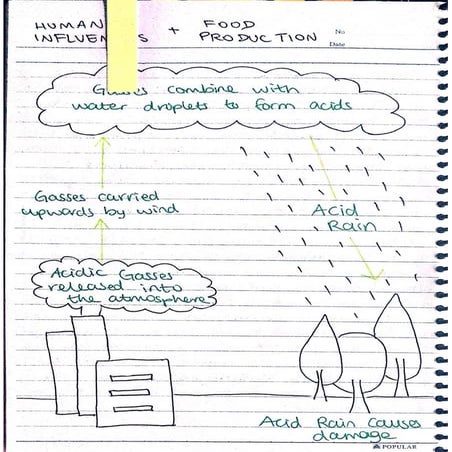 HUMAN + FOOD
PRODUCTION
No
Date
combine with
water droplets to form acids
Gasses carried
upwards by wind
Acid
Rain
Acidic Gasses
released into
the atmosphere
Acid Rain causes
damage
POPULAR